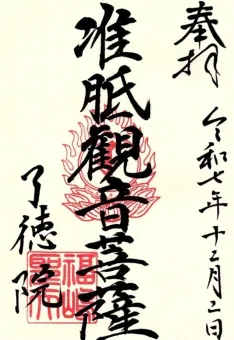 奉拝
令和七年十二月二日
准胝觀音菩薩
了徳院